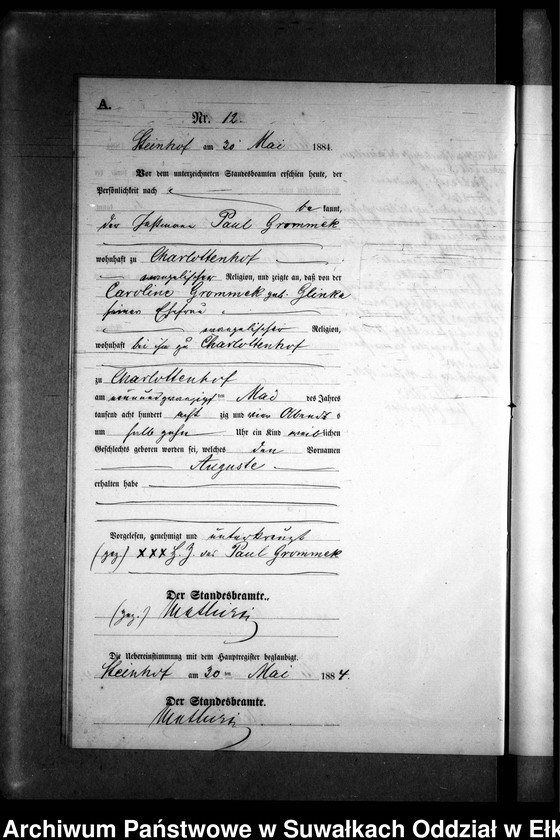 A.
Nr. 12.
Steinhof am 30 Mai 1884.
Vor dem unterzeichneten Standesbeamten erschien heute, der
Persönlichkeit nach
be kannt,
der Paul Grommek
wohnhaft zu Charlottenhof
evangelischer Religion, und zeigte an, daß von der
Caroline Grommek geb. Glinka
seiner Ehefrau
evangelischer Religion,
wohnhaft bei ihm zu Charlottenhof
zu Charlottenhof
am neunundzwanzigsten Mai des Jahres
tausend acht hundert acht zig und vier Abends
um halb zehn Uhr ein Kind weib lichen
Geschlechts geboren worden sei, welches den Vornamen
Auguste
erhalten habe
Vorgelesen, genehmigt und unterkreuzt
(gez.) XXX H. Z. des Paul Grommek
Der Standesbeamte.
(gez.)
Die Uebereinstimmung mit dem Hauptregister beglaubigt.
Steinhof am 30 ten Mai 1884.
Der Standesbeamte.
Archiwum Państwowe w Suwałkach Oddział w Ełk